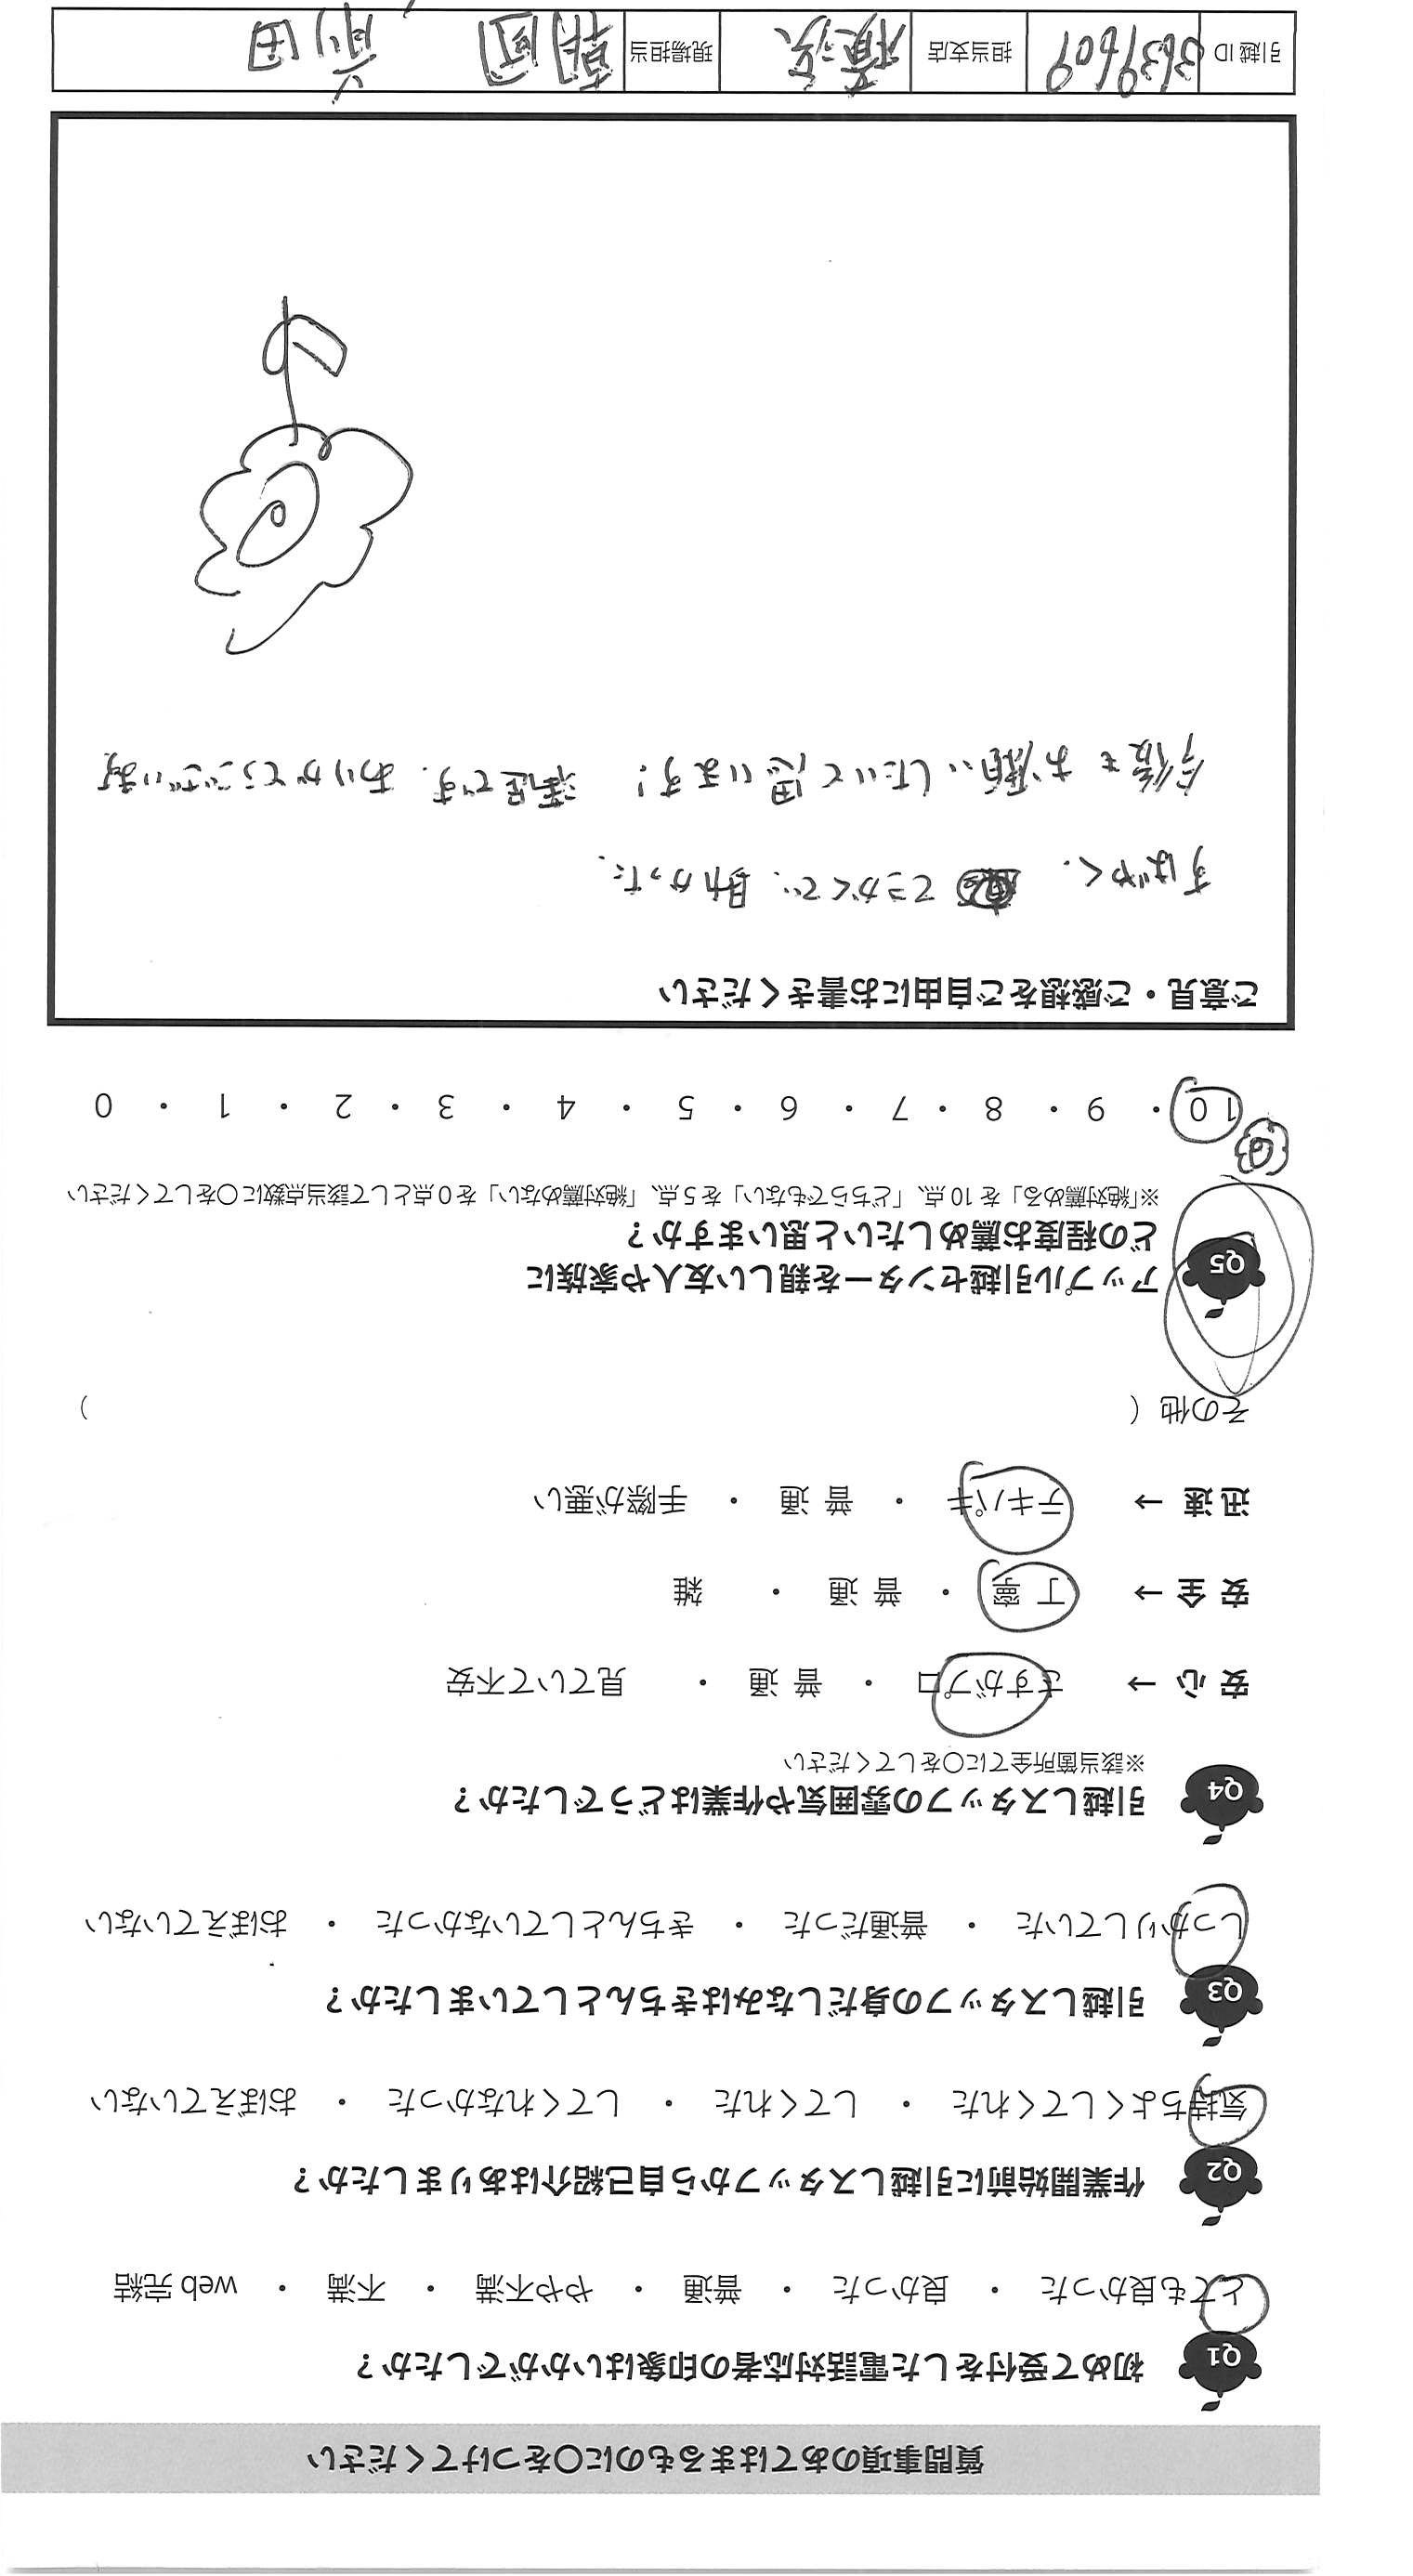 質問事項のあてはまるものに〇をつけてください
Q1 初めて受付をした電話対応者の印象はいかがでしたか？
とても良かった ・ 良かった ・ 普通 ・ やや不満 ・ 不満 ・ web 完結
Q2 作業開始前に引越しスタッフから自己紹介はありましたか？
気持ちよくしてくれた ・ してくれた ・ してくれなかった ・ おぼえていない
Q3 引越しスタッフの身だしなみはきちんとしていましたか？
しっかりしていた ・ 普通だった ・ きちんとしていなかった ・ おぼえていない
Q4 引越しスタッフの雰囲気や作業はどうでしたか？
※該当箇所全てに〇をしてください
安心 → さすがプロ ・ 普通 ・ 見ていて不安
安全 → 丁寧 ・ 普通 ・ 雑
迅速 → テキパキ ・ 普通 ・ 手際が悪い
その他（ ）
Q5 アップル引越センターを親しい友人や家族に
どの程度お薦めしたいと思いますか？
※「絶対薦める」を10点、「どちらでもない」を5点、「絶対薦めない」を0点として該当点数に〇をしてください
10 ・ 9 ・ 8 ・ 7 ・ 6 ・ 5 ・ 4 ・ 3 ・ 2 ・ 1 ・ 0
ご意見・ご感想をご自由にお書きください
すばやく、 てごがくで、助かった。
今後もお願いしたいと思います！ 満足です。ありがとうございます
引越 ID 3639609 担当支店 横浜 現場担当 朝岡 前田